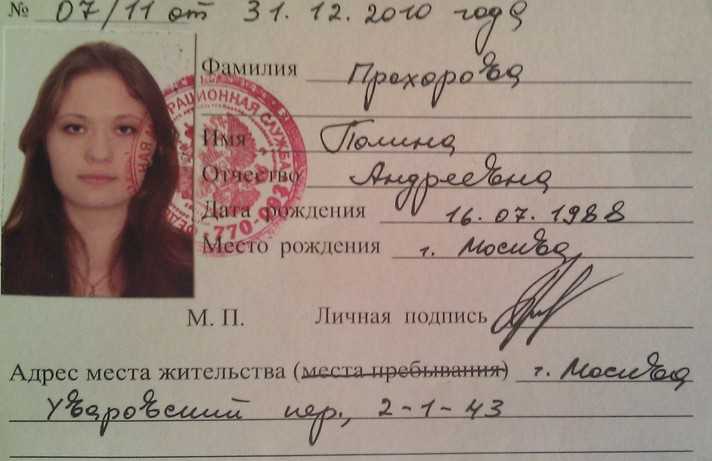 № 07/11 от 31.12.2010 года
Фамилия Прохорова
Имя Полина
Отчество Андреевна
Дата рождения 16.07.1988
Место рождения г. Москва
РАЦИОННАЯ СЛУЖБА
770-003
М. П. Личная подпись
Адрес места жительства (места пребывания) г. Москва
Уваровский пер., 2-1-43